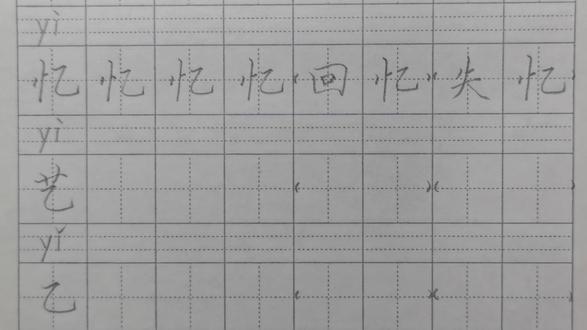 yì
忆 忆 忆 忆 (回 忆) (失 忆)
yì
艺 ( ) ( )
yǐ
乙 ( ) ( )